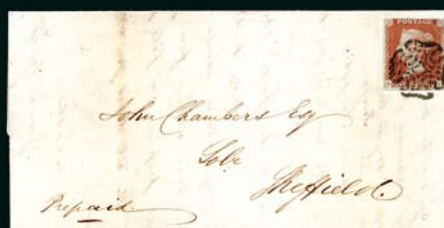 POSTAGE
John Chambers Esq
Solr
Sheffield
Prepaid